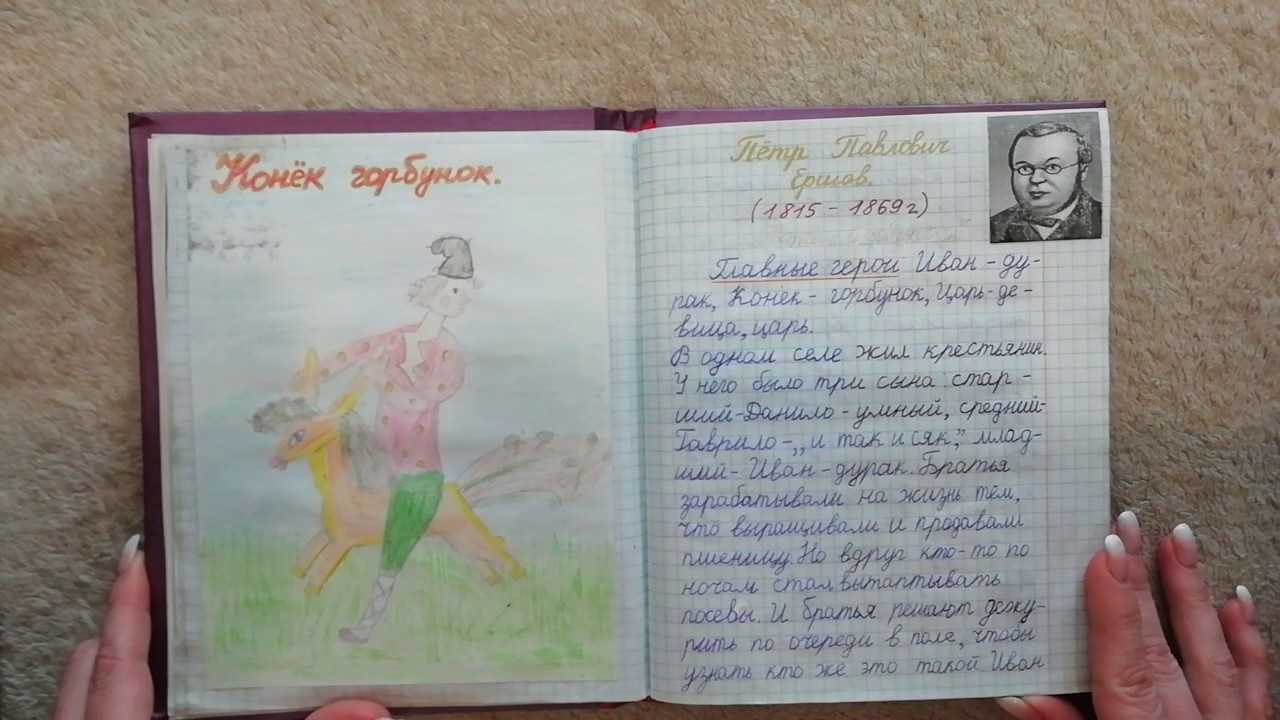 Конёк горбунок.
Пётр Павлович
Ершов.
(1815 - 1869г)
Главные герои Иван - ду-
рак, Конёк - горбунок, Царь-де-
вица, царь.
В одном селе жил крестьянин.
У него было три сына: стар -
ший-Данило - умный, средний-
Гаврило-„и так и сяк,” млад-
ший - Иван - дурак. Братья
зарабатывали на жизнь тем,
что выращивали и продавали
пшеницу. Но вдруг кто-то по
ночам стал вытаптывать
посевы. И братья решают дежу-
рить по очереди в поле, чтобы
узнать кто же это такой. Иван